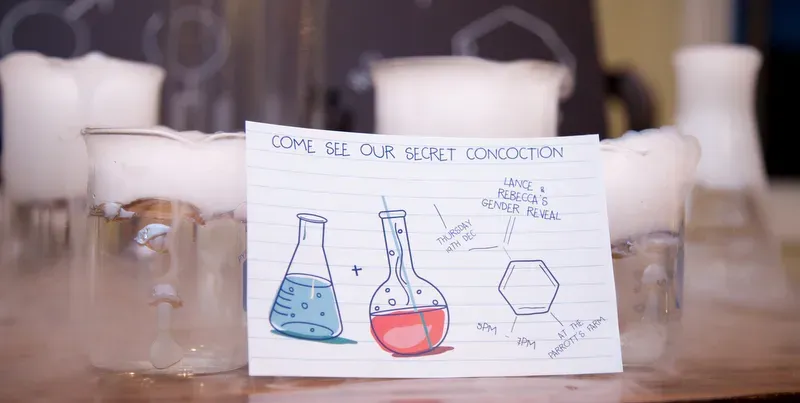 COME SEE OUR SECRET CONCOCTION
LANCE &
REBECCA'S
GENDER REVEAL
THURSDAY
19TH DEC
+
- 7PM
AT THE
PARROTT'S FARM